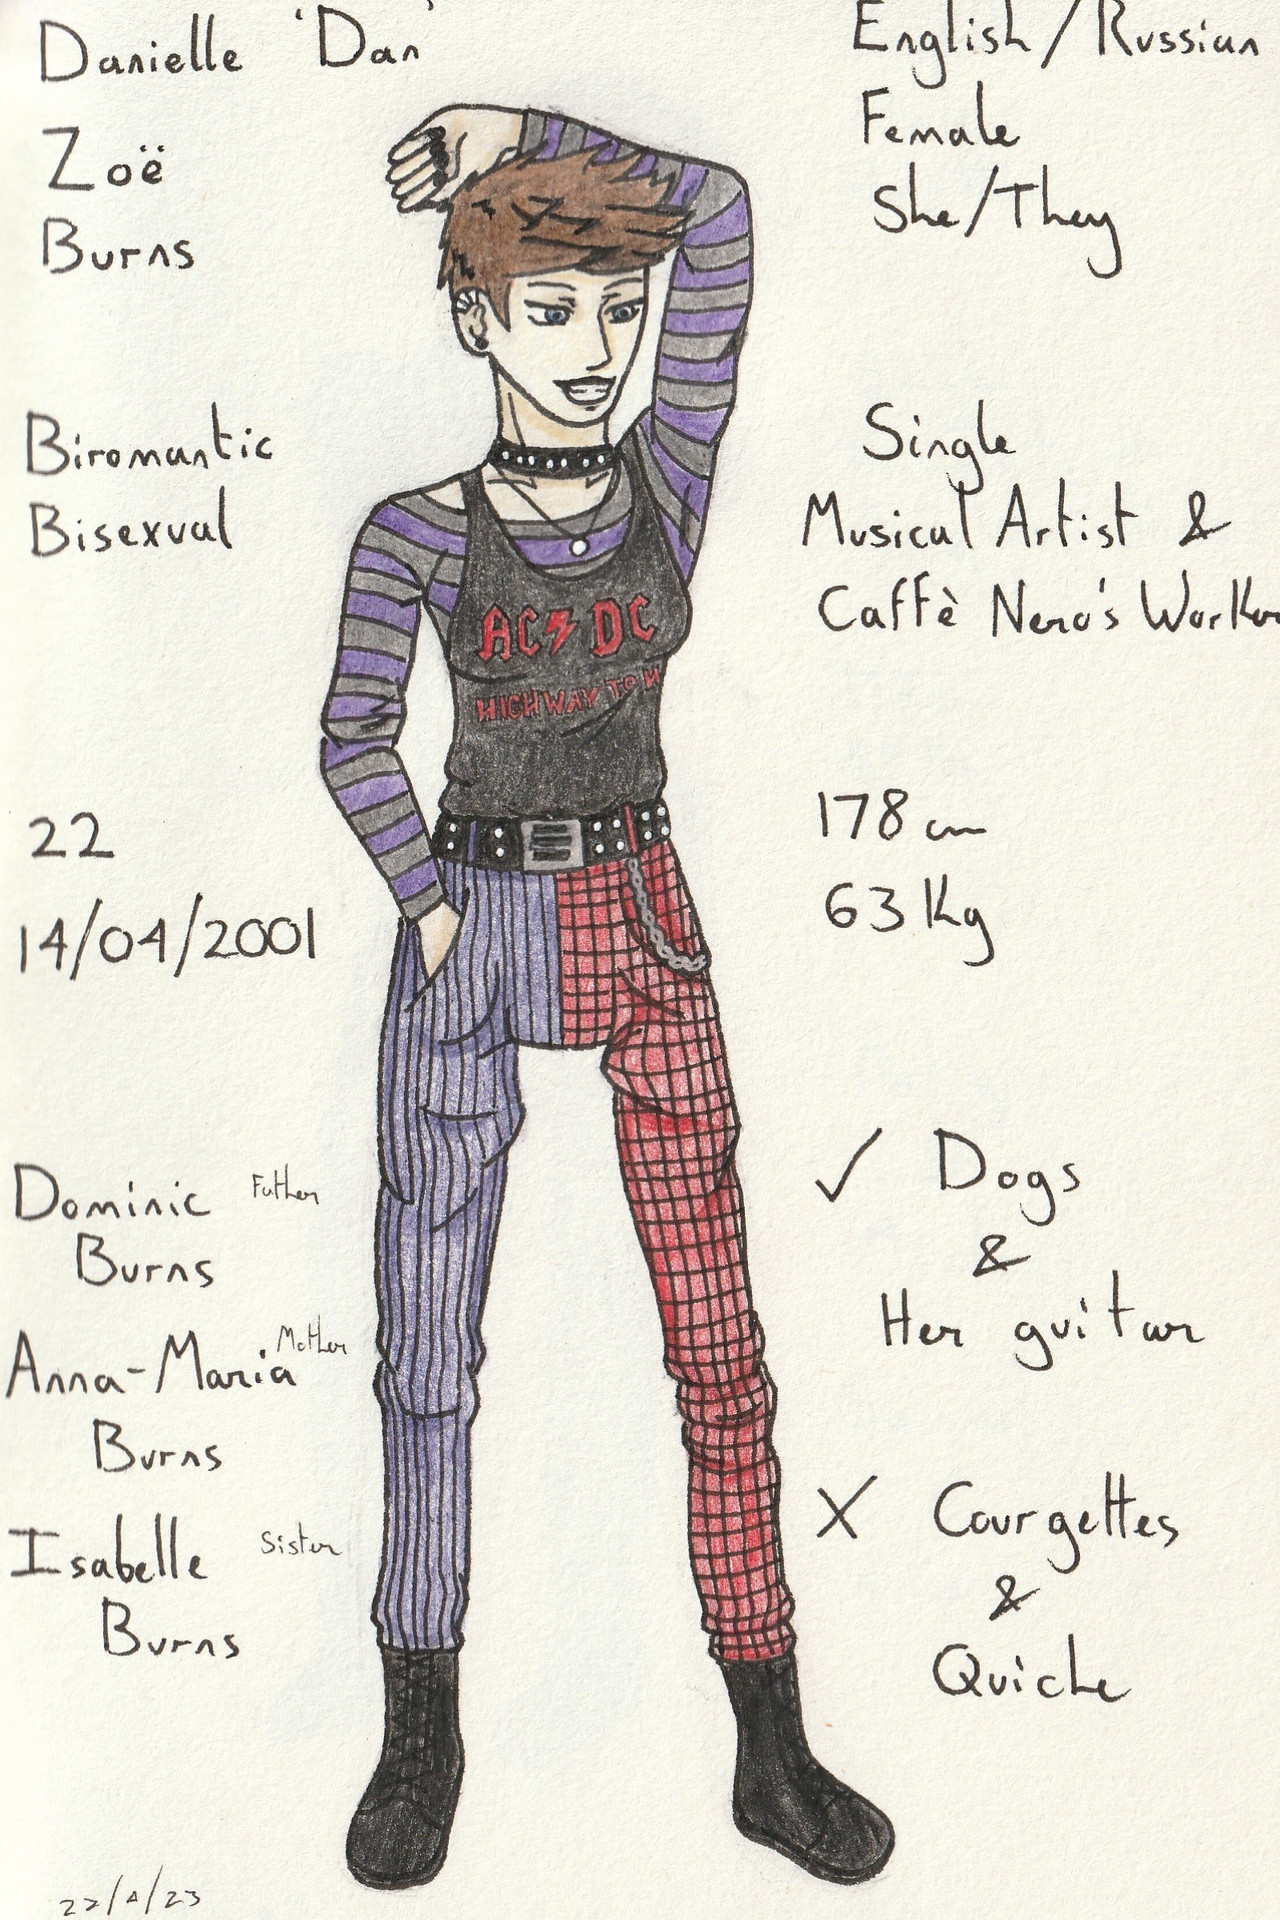 Danielle 'Dan'
Zoë
Burns
English / Russian
Female
She/They
Biromantic
Bisexual
Single
Musical Artist &
Caffè Nero's Worker
AC⚡DC
HIGHWAY TO H
22
14/04/2001
178 cm
63 Kg
Dominic Father
Burns
Anna-Maria Mother
Burns
Isabelle Sister
Burns
✓ Dogs
&
Her guitar
X Courgettes
&
Quiche
22/4/23